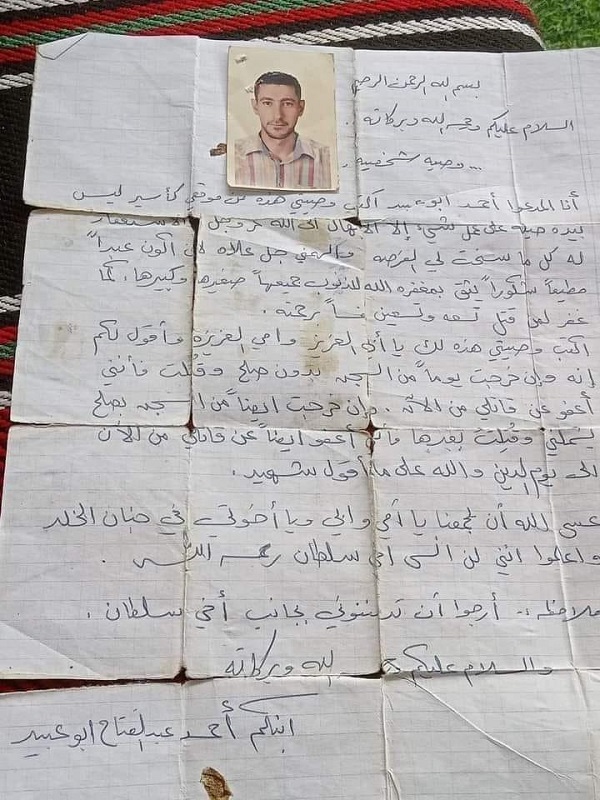 بسم الله الرحمن الرحيم
السلام عليكم ورحمة الله وبركاته.
... وصيه شخصيه.
أنا المدعوا أحمد ابو عبيد اكتب وصيتي هذه من موقعي كأسير ليس
بيده حيله على عمل شيء إلا الابتهال الى الله عز وجل والاستغفار
له كل ما سنحت لي الفرصه والهمني جل علاه لان أكون عبداً
مطيعاً شكوراً يثق بمغفره الله للذنوب جميعها صغيرها وكبيرها، كما
غفر لمن قتل تسعه وتسعين نفساً برحمته.
اكتب وصيتي هذه لك يا أبي العزيز وامي العزيزة وأقول لكم
إنه وإن خرجت يوماً من السجن بدون صلح وقُتلت فأنني
أعفو عن قاتلي من الآن. وإن خرجت ايضاً من السجن بصلح
يشملني وقُتلت بعدها فانني أعفو ايضاً عن قاتلي من الآن
الى يوم الدين والله على ما أقول شهيد.
عسى الله أن يجمعنا يا أمي وابي ويا أخوتي في جنان الخلد
واعلموا انني لن انسى اخي سلطان رحمه الله.
ملاحظه:- أرجوا أن تدفنوني بجانب أخي سلطان.
والسلام عليكم ورحمة الله وبركاته
ابنكم أحمد عبد الفتاح ابو عبيد